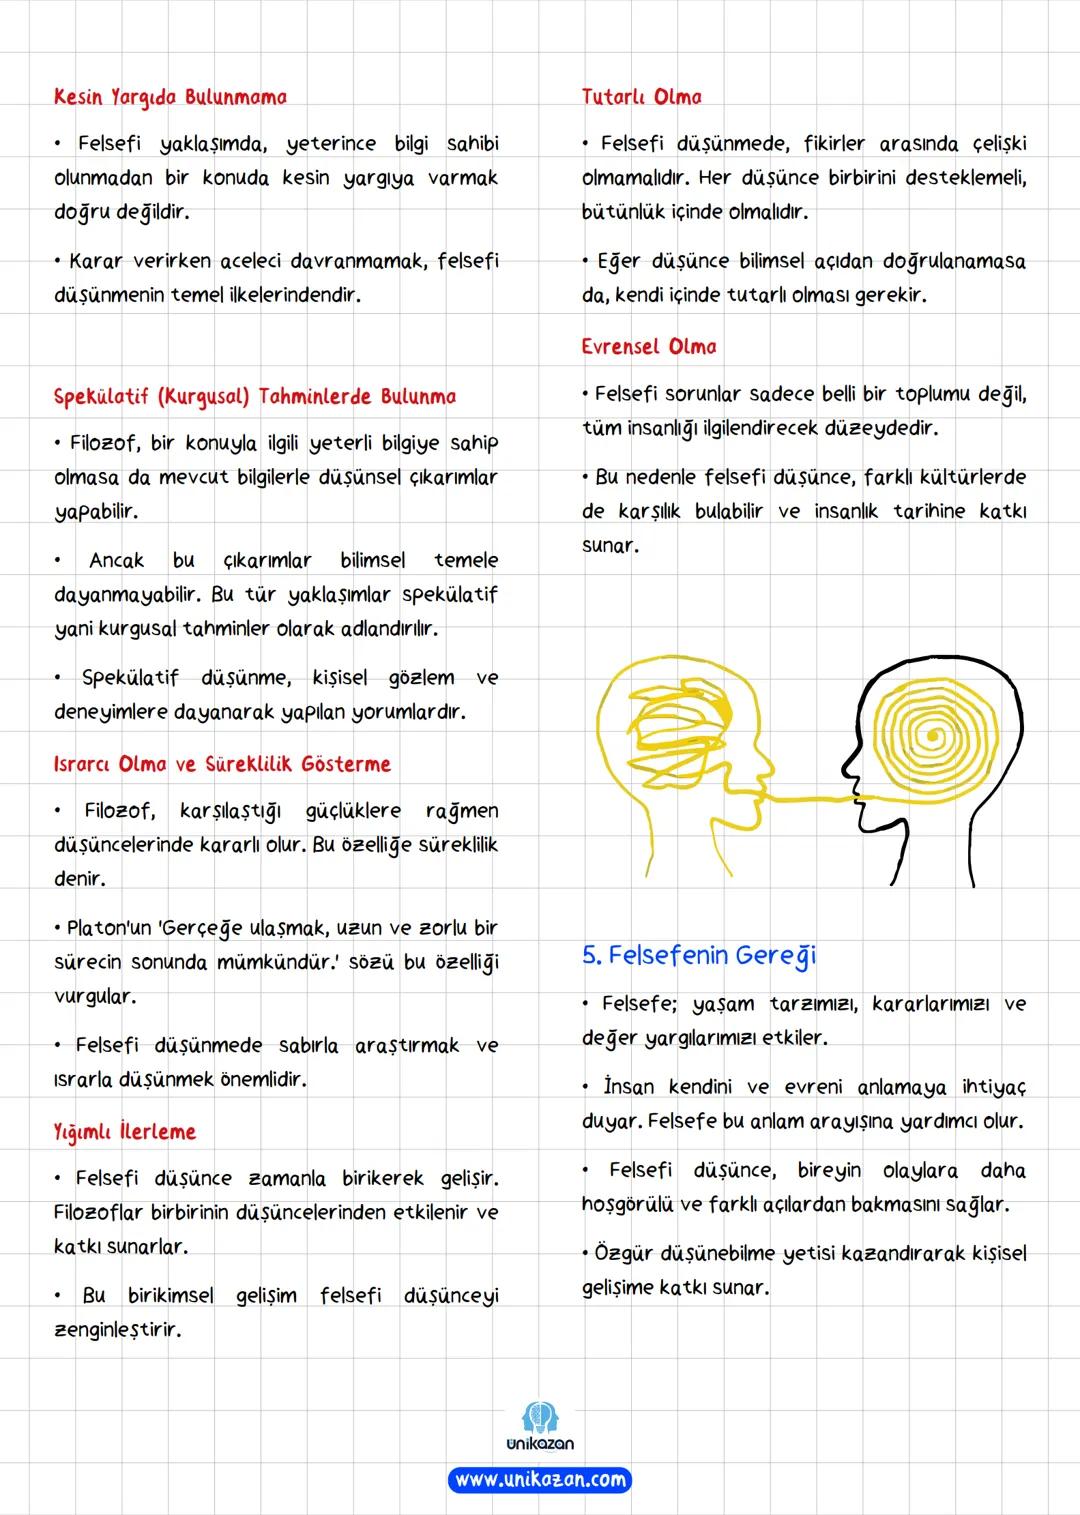 Kesin Yargıda Bulunmama
• Felsefi yaklaşımda, yeterince bilgi sahibi
olunmadan bir konuda kesin yargıya varmak
doğru değildir.
• Karar verirken aceleci davranmamak, felsefi
düşünmenin temel ilkelerindendir.
Spekülatif (Kurgusal) Tahminlerde Bulunma
• Filozof, bir konuyla ilgili yeterli bilgiye sahip
olmasa da mevcut bilgilerle düşünsel çıkarımlar
yapabilir.
• Ancak bu çıkarımlar bilimsel temele
dayanmayabilir. Bu tür yaklaşımlar spekülatif
yani kurgusal tahminler olarak adlandırılır.
• Spekülatif düşünme, kişisel gözlem ve
deneyimlere dayanarak yapılan yorumlardır.
Israrcı Olma ve Süreklilik Gösterme
• Filozof, karşılaştığı güçlüklere rağmen
düşüncelerinde kararlı olur. Bu özelliğe süreklilik
denir.
• Platon'un 'Gerçeğe ulaşmak, uzun ve zorlu bir
sürecin sonunda mümkündür.' sözü bu özelliği
vurgular.
• Felsefi düşünmede sabırla araştırmak ve
ısrarla düşünmek önemlidir.
Yığımlı İlerleme
• Felsefi düşünce zamanla birikerek gelişir.
Filozoflar birbirinin düşüncelerinden etkilenir ve
katkı sunarlar.
• Bu birikimsel gelişim felsefi düşünceyi
zenginleştirir.
Tutarlı Olma
• Felsefi düşünmede, fikirler arasında çelişki
olmamalıdır. Her düşünce birbirini desteklemeli,
bütünlük içinde olmalıdır.
• Eğer düşünce bilimsel açıdan doğrulanamasa
da, kendi içinde tutarlı olması gerekir.
Evrensel Olma
• Felsefi sorunlar sadece belli bir toplumu değil,
tüm insanlığı ilgilendirecek düzeydedir.
• Bu nedenle felsefi düşünce, farklı kültürlerde
de karşılık bulabilir ve insanlık tarihine katkı
sunar.
5. Felsefenin Gereği
• Felsefe; yaşam tarzımızı, kararlarımızı ve
değer yargılarımızı etkiler.
• İnsan kendini ve evreni anlamaya ihtiyaç
duyar. Felsefe bu anlam arayışına yardımcı olur.
• Felsefi düşünce, bireyin olaylara daha
hoşgörülü ve farklı açılardan bakmasını sağlar.
• Özgür düşünebilme yetisi kazandırarak kişisel
gelişime katkı sunar.
ünikazan
www.unikazan.com